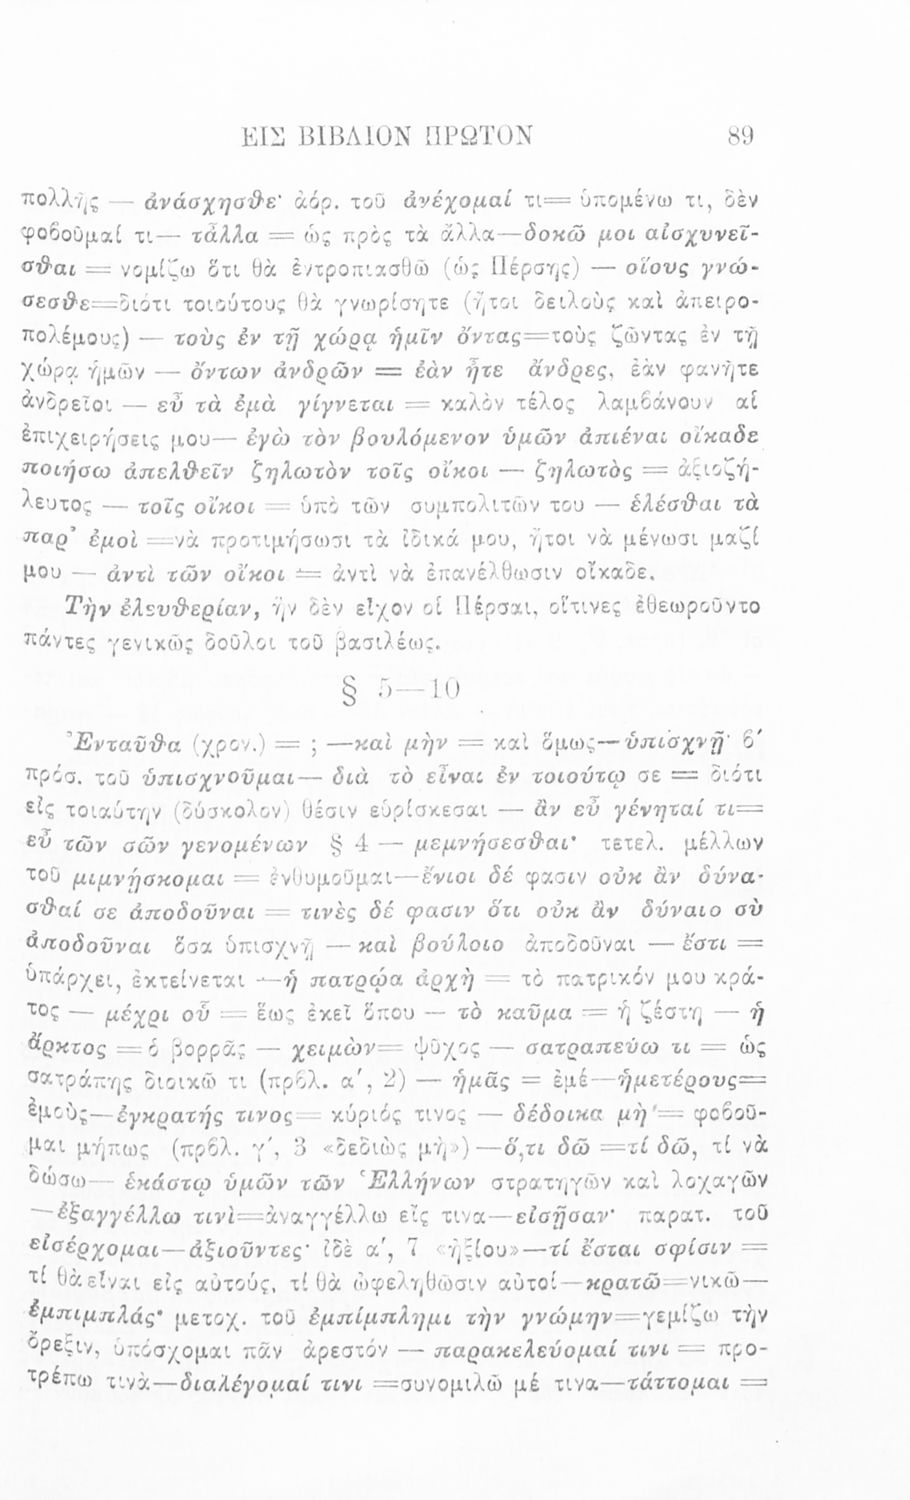 ΕΙΣ ΒΙΒΛΙΟΝ ΠΡΩΤΟΝ 89
πολλῆς — ἀνάσχησθε· ἀόρ. τοῦ ἀνέχομαί τι= ὑπομένω τι, δὲν
φοβοῦμαί τι— τἆλλα = ὡς πρὸς τὰ ἄλλα—δοκῶ μοι αἰσχυνεῖ-
σθαι = νομίζω ὅτι θὰ ἐντροπιασθῶ (ὡς Πέρσης) — οἵους γνώ-
σεσθε=διότι τοιούτους θὰ γνωρίσητε (ἤτοι δειλοὺς καὶ ἀπειρο-
πολέμους) — τοὺς ἐν τῇ χώρᾳ ἡμῖν ὄντας=τοὺς ζῶντας ἐν τῇ
χώρᾳ ἡμῶν — ὄντων ἀνδρῶν = ἐὰν ἦτε ἄνδρες, ἐὰν φανῆτε
ἀνδρεῖοι — εὖ τὰ ἐμὰ γίγνεται = καλὸν τέλος λαμβάνουν αἱ
ἐπιχειρήσεις μου— ἐγὼ τὸν βουλόμενον ὑμῶν ἀπιέναι οἴκαδε
ποιήσω ἀπελθεῖν ζηλωτὸν τοῖς οἴκοι — ζηλωτὸς = ἀξιοζή-
λευτος — τοῖς οἴκοι = ὑπὸ τῶν συμπολιτῶν του — ἑλέσθαι τὰ
παρ᾽ ἐμοὶ =νὰ προτιμήσωσι τὰ ἰδικά μου, ἤτοι νὰ μένωσι μαζί
μου — ἀντὶ τῶν οἴκοι = ἀντὶ νὰ ἐπανέλθωσιν οἴκαδε.
Τὴν ἐλευθερίαν, ἣν δὲν εἶχον οἱ Πέρσαι, οἵτινες ἐθεωροῦντο
πάντες γενικῶς δοῦλοι τοῦ βασιλέως.
§ 5—10
Ἐνταῦθα (χρον.) = ; —καὶ μὴν = καὶ ὅμως—ὑπισχνῇ· β΄
πρόσ. τοῦ ὑπισχνοῦμαι— διὰ τὸ εἶναι ἐν τοιούτῳ σε = διότι
εἰς τοιαύτην (δύσκολον) θέσιν εὑρίσκεσαι — ἂν εὖ γένηταί τι=
εὖ τῶν σῶν γενομένων § 4 — μεμνήσεσθαι· τετελ. μέλλων
τοῦ μιμνήσκομαι = ἐνθυμοῦμαι—ἔνιοι δέ φασιν οὐκ ἂν δύνα-
σθαί σε ἀποδοῦναι = τινὲς δέ φασιν ὅτι οὐκ ἂν δύναιο σὺ
ἀποδοῦναι ὅσα ὑπισχνῇ — καὶ βούλοιο ἀποδοῦναι — ἔστι =
ὑπάρχει, ἐκτείνεται —ἡ πατρῴα ἀρχὴ = τὸ πατρικόν μου κρά-
τος — μέχρι οὗ = ἕως ἐκεῖ ὅπου — τὸ καῦμα = ἡ ζέστη — ἡ
ἄρκτος = ὁ βορρᾶς — χειμὼν= ψῦχος — σατραπεύω τι = ὡς
σατράπης διοικῶ τι (πρβλ. α΄, 2) — ἡμᾶς = ἐμέ—ἡμετέρους=
ἐμοὺς—ἐγκρατής τινος= κύριός τινος — δέδοικα μὴ = φοβοῦ-
μαι μήπως (πρβλ. γ΄, 3 «δεδιὼς μὴ») —ὅ,τι δῶ =τί δῶ, τί νὰ
δώσω— ἑκάστῳ ὑμῶν τῶν Ἑλλήνων στρατηγῶν καὶ λοχαγῶν
—ἐξαγγέλλω τινὶ=ἀναγγέλλω εἴς τινα—εἰσῇσαν· παρατ. τοῦ
εἰσέρχομαι—ἀξιοῦντες· ἰδὲ α΄, 7 «ἠξίου»—τί ἔσται σφίσιν =
τί θὰ εἶναι εἰς αὐτούς, τί θὰ ὠφεληθῶσιν αὐτοί—κρατῶ=νικῶ—
ἐμπιμπλάς· μετοχ. τοῦ ἐμπίμπλημι τὴν γνώμην=γεμίζω τὴν
ὄρεξιν, ὑπόσχομαι πᾶν ἀρεστόν — παρακελεύομαί τινι = προ-
τρέπω τινὰ—διαλέγομαί τινι =συνομιλῶ μέ τινα—τάττομαι =